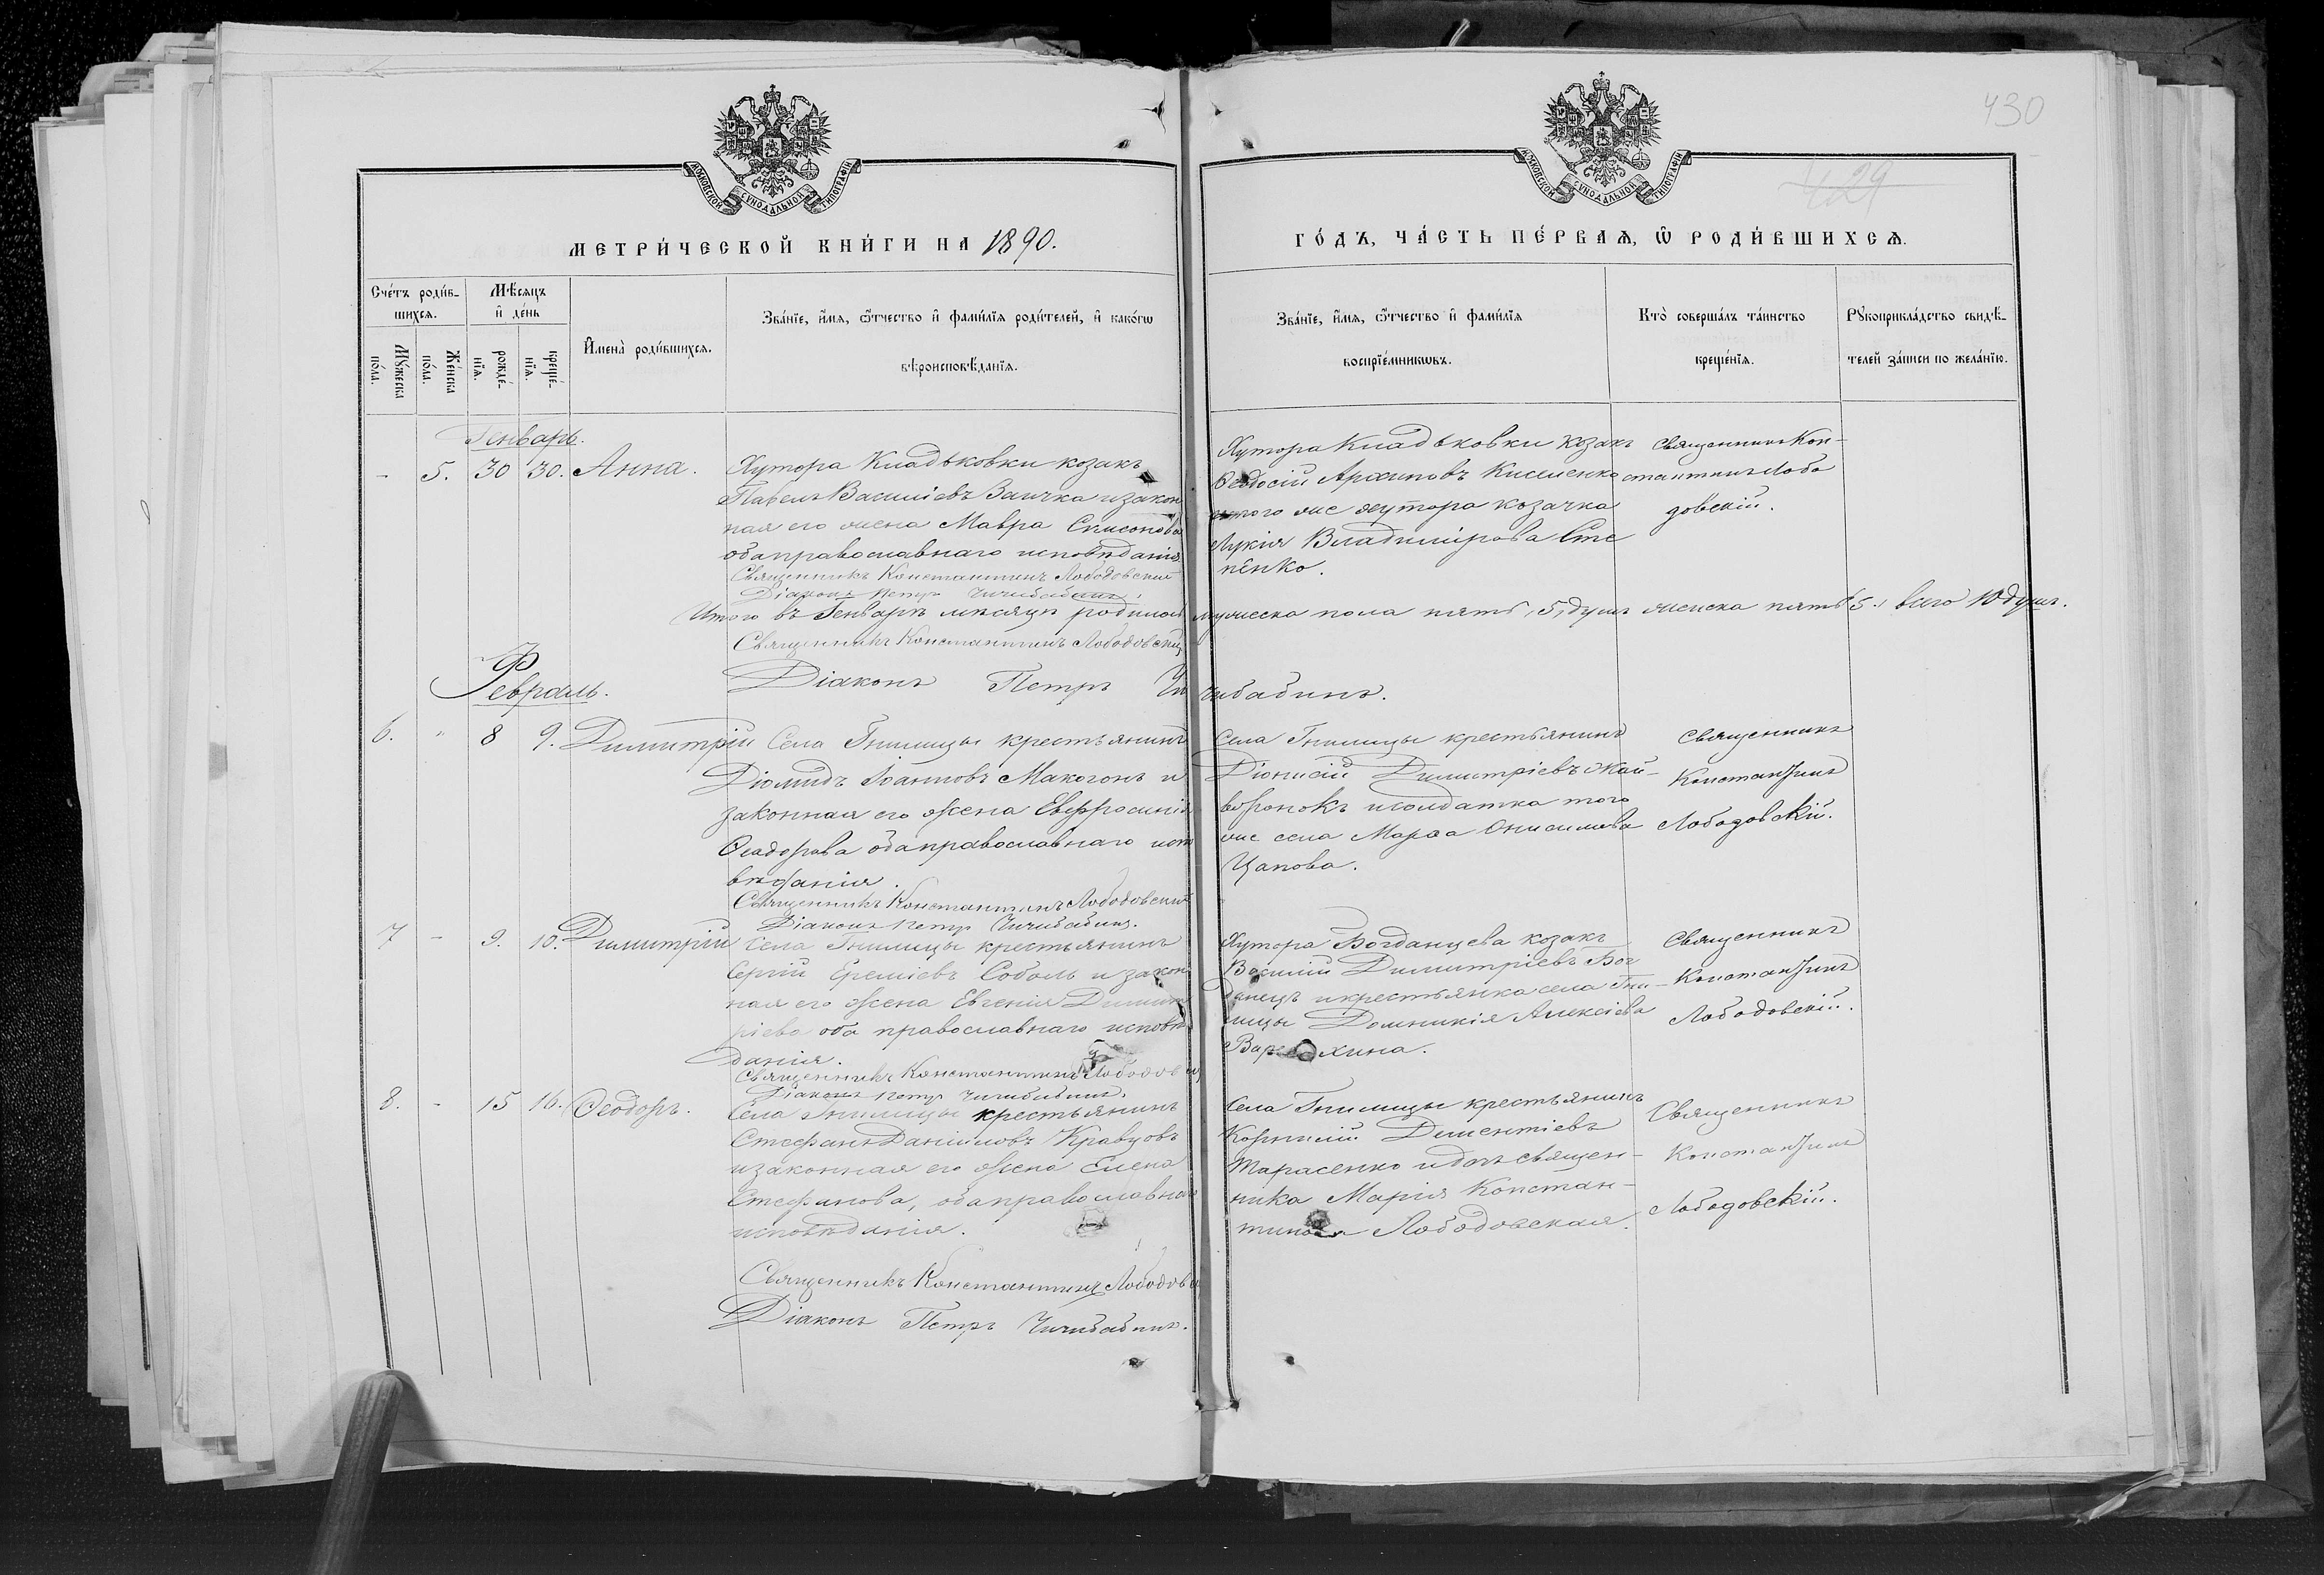 430
429
МОСКОВСКОЙ СѴНОДАЛЬНОЙ ТИПОГРАФІИ
МОСКОВСКОЙ СѴНОДАЛЬНОЙ ТИПОГРАФІИ
МЕТРИ́ЧЕСКОЙ КНИ́ГИ НА 1890.
ГО́ДЪ, ЧА́СТЬ ПЕ́РВАѦ, Ѡ РОДИ́ВШИХСѦ.
Сче́тъ роди́в-
шихсѧ.
Мꙋ́жеска по́ла.
Же́нска по́ла.
Мѣ́сѧцъ
и҆ де́нь
рожде́-
нїѧ.
креще́-
нїѧ.
И҆мена̀ роди́вшихсѧ.
Зва́нїе, и҆́мѧ, ѻ҆́тчество и҆ фами́лїѧ роди́телей, и҆ како́гѡ
вѣроисповѣ́данїѧ.
Зва́нїе, и҆́мѧ, ѻ҆́тчество и҆ фами́лїѧ
воспрїе́мникѡвъ.
Кто̀ соверша́лъ та́инство
креще́нїѧ.
Рꙋкоприкла́дство свидѣ́-
телей за́писи по жела́нїю.
Генварь.
- 5. 30 30. Анна.
Хутора Кладьковки козакъ
Павелъ Василіевъ Заичка и закон
ная его жена Мавра
оба православнаго исповѣданія
Священникъ Константинъ Лободовскій
Діаконъ Петръ Чичибабинъ.
Хутора Кладьковки козакъ
Ѳеодосій Архиповъ Киселенко
того же хутора козачка
Лукія Владимірова Сте
пенко.
Священникъ Кон-
стантинъ Лобо
довскій.
Итого въ Генварѣ мѣсяцѣ родилось мужеска пола пять, 5, душъ женска пять 5., всего 10 душъ.
Священникъ Константинъ Лободовскій
Діаконъ Петръ Чичибабинъ.
Февраль.
6. " 8 9. Димитрій
Села Гнилицы крестьянинъ
Діомидъ Іоанновъ Макогонъ и
законная его жена Евфросинія
Ѳеодорова оба православнаго испо
вѣданія.
Священникъ Константинъ Лободовскій
Діаконъ Петръ Чичибабинъ.
Села Гнилицы крестьянинъ
Діонисій Димитріевъ Жай-
воронокъ и солдатка того
же села Марѳа Онисимова
Цапова.
Священникъ
Константинъ
Лободовскій.
7 - 9. 10. Димитрій
Села Гнилицы крестьянинъ
Сергій Ереміевъ Соболь и закон
ная его жена Евгенія Димит
ріева оба православнаго исповѣ
данія.
Священникъ Константинъ Лободов
Діаконъ Петръ Чичибабинъ.
Хутора Богданцева козакъ
Василій Димитріевъ Бог
данецъ и крестьянка села Гни-
лицы Домникія Алексіева
Священникъ
Константинъ
Лободовскій.
8. - 15 16. Ѳеодоръ.
Села Гнилицы крестьянинъ
Стефанъ Даніиловъ Кравцовъ
и законная его жена Елена
Стефанова, оба православнаго
исповѣданія.
Священникъ Константинъ Лободов
Діаконъ Петръ Чичибабинъ.
Села Гнилицы крестьянинъ
Корнилій Дементіевъ
Тарасенко и дочь священ-
ника Марія Констан-
тинова Лободовская.
Священникъ
Константинъ
Лободовскій.